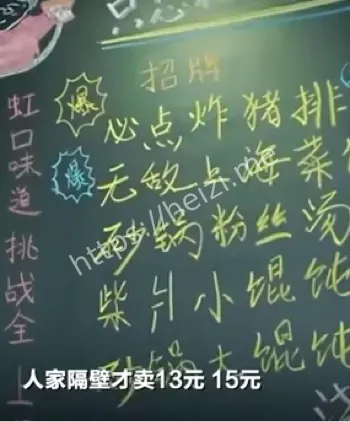 招牌
爆
必点炸猪排
爆
无敌上海菜
砂锅粉丝汤
柴爿小馄饨
砂锅大馄饨
虹口味道 挑战全上
https://heizi.me
人家隔壁才卖13元 15元